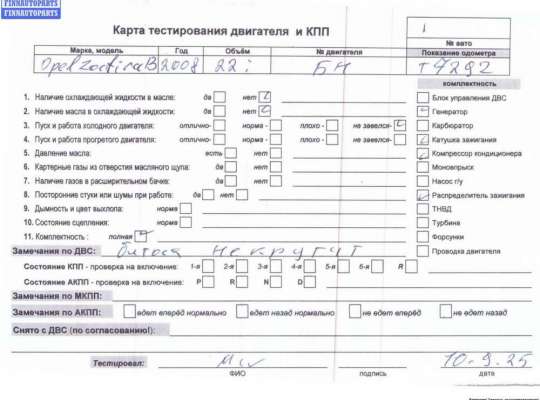 FINNAUTOPARTS
FINNAUTOPARTS
Карта тестирования двигателя и КПП
1
№ авто
Марка, модель Год Объём № двигателя Показание одометра
Opel Zafira B 2008 22i БН
комплектность
1. Наличие охлаждающей жидкости в масле: да нет Блок управления ДВС
2. Наличие масла в охлаждающей жидкости: да нет Генератор
3. Пуск и работа холодного двигателя: отлично- норма - плохо - не завелся- Карбюратор
4. Пуск и работа прогретого двигателя: отлично- норма - плохо - не завелся- Катушка зажигания
5. Давление масла: есть нет Компрессор кондиционера
6. Картерные газы из отверстия масляного щупа: да нет Моновпрыск
7. Наличие газов в расширительном бачке: да нет Насос г/у
8. Посторонние стуки или шумы при работе: да нет Распределитель зажигания
9. Дымность и цвет выхлопа: норма ТНВД
10. Состояние сцепления: норма Турбина
11. Комплектность : полная Форсунки
Замечания по ДВС: Битая не крутут Проводка двигателя
Состояние КПП - проверка на включение: 1-я 2-я 3-я 4-я 5-я 6-я R
Состояние АКПП - проверка на включение: P R N D
Замечания по МКПП:
Замечания по АКПП: едет вперёд нормально едет назад нормально не едет вперёд не едет назад
Снято с ДВС (по согласованию!):
Тестировал: 10-9-25
ФИО подпись дата